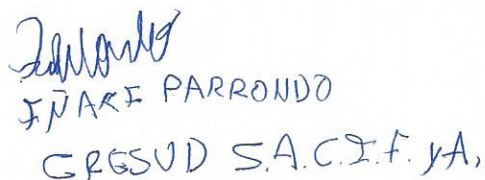 IÑAKI PARRONDO
CRESUD S.A.C.I.F. yA,